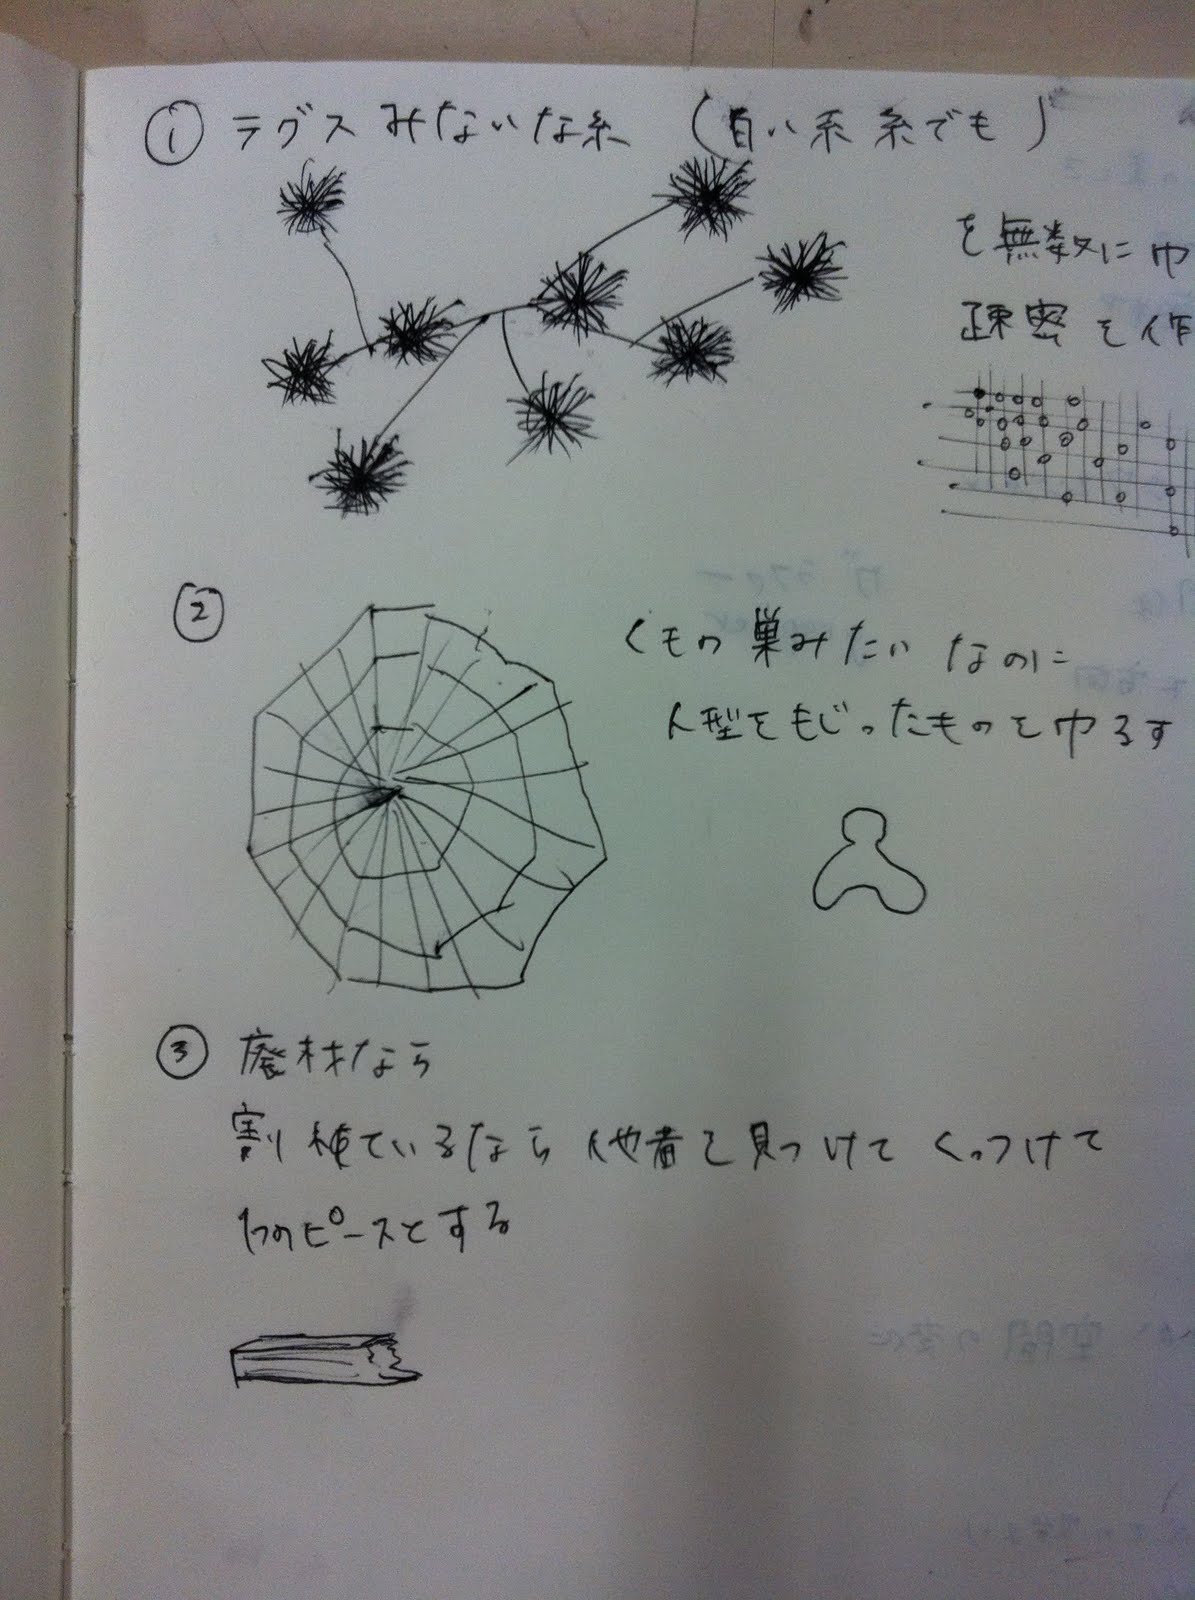 ① ラグスみないな糸 (白い糸糸でも)
を無数に巾
疎密を作
② くもの巣みたいなのに
人型をもじったものを巾るす
③ 廃材なら
割 ているなら他者を見つけてくっつけて
1つのピースとする